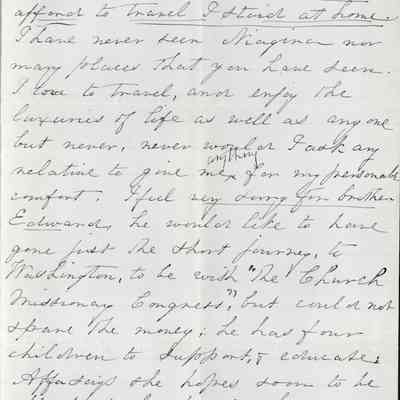 afford to travel I staid at home.
I have never seen Niagina nor
many places that you have seen.
I love to travel, and enjoy the
luxuries of life as well as any one
but never, never would I ask any
anything
relative to give me x for my personal
comfort. I feel very sorry for brother
Edward, he would like to have
gone just the short journey, to
Washington, to be with "the Church
Missionary Congress", but could not
spare the money; he has four
children to support, & educate.
says she hopes soon to be